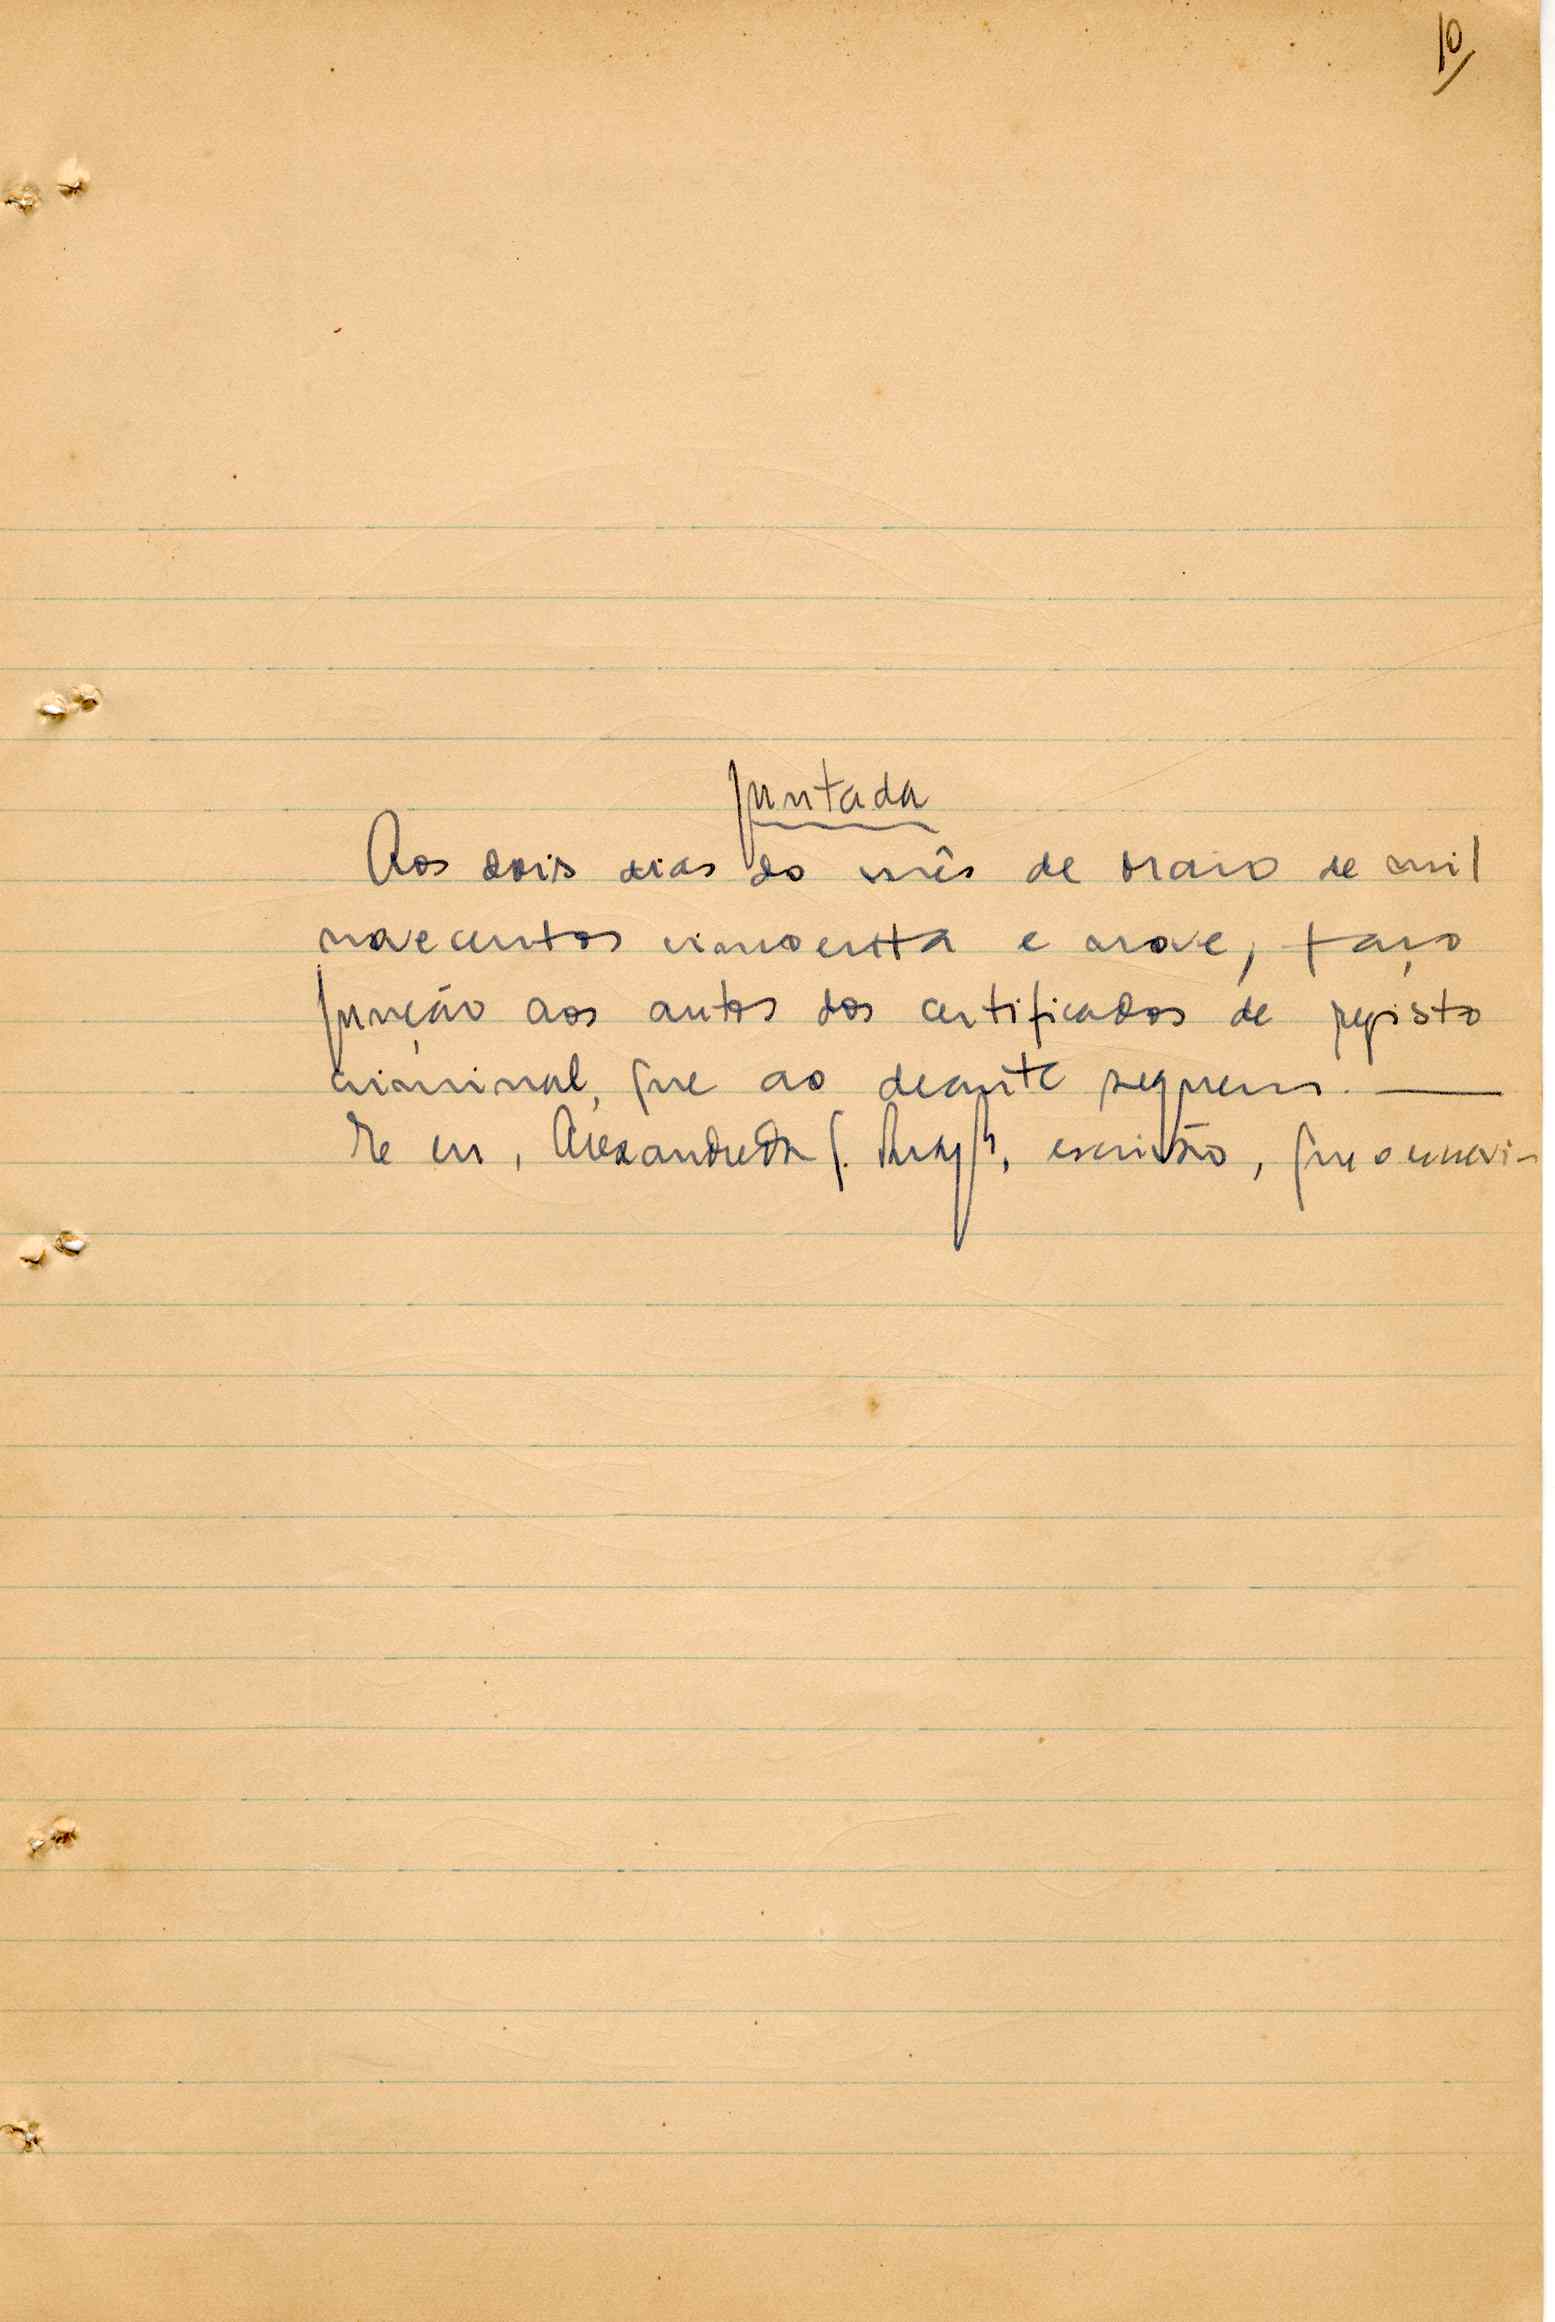 10
Juntada
Aos dois dias do mês de maio de mil
novecentos cincoenta e nove, faço
junção aos autos dos certificados de registo
criminal, que ao deante seguem.
E eu, escrivão, que o escrevi-